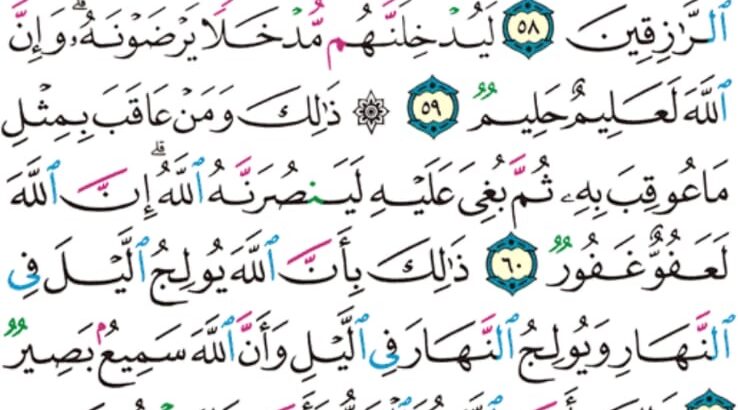 ٱلرَّٰزِقِينَ ٥٨ لَيُدْخِلَنَّهُم مُّدْخَلًا يَرْضَوْنَهُۥۗ وَإِنَّ
ٱللَّهَ لَعَلِيمٌ حَلِيمٌ ٥٩ ۞ ذَٰلِكَ وَمَنْ عَاقَبَ بِمِثْلِ
مَا عُوقِبَ بِهِۦ ثُمَّ بُغِىَ عَلَيْهِ لَيَنصُرَنَّهُ ٱللَّهُۗ إِنَّ ٱللَّهَ
لَعَفُوٌّ غَفُورٌ ٦٠ ذَٰلِكَ بِأَنَّ ٱللَّهَ يُولِجُ ٱلَّيْلَ فِى
ٱلنَّهَارِ وَيُولِجُ ٱلنَّهَارَ فِى ٱلَّيْلِ وَأَنَّ ٱللَّهَ سَمِيعٌۢ بَصِيرٌ